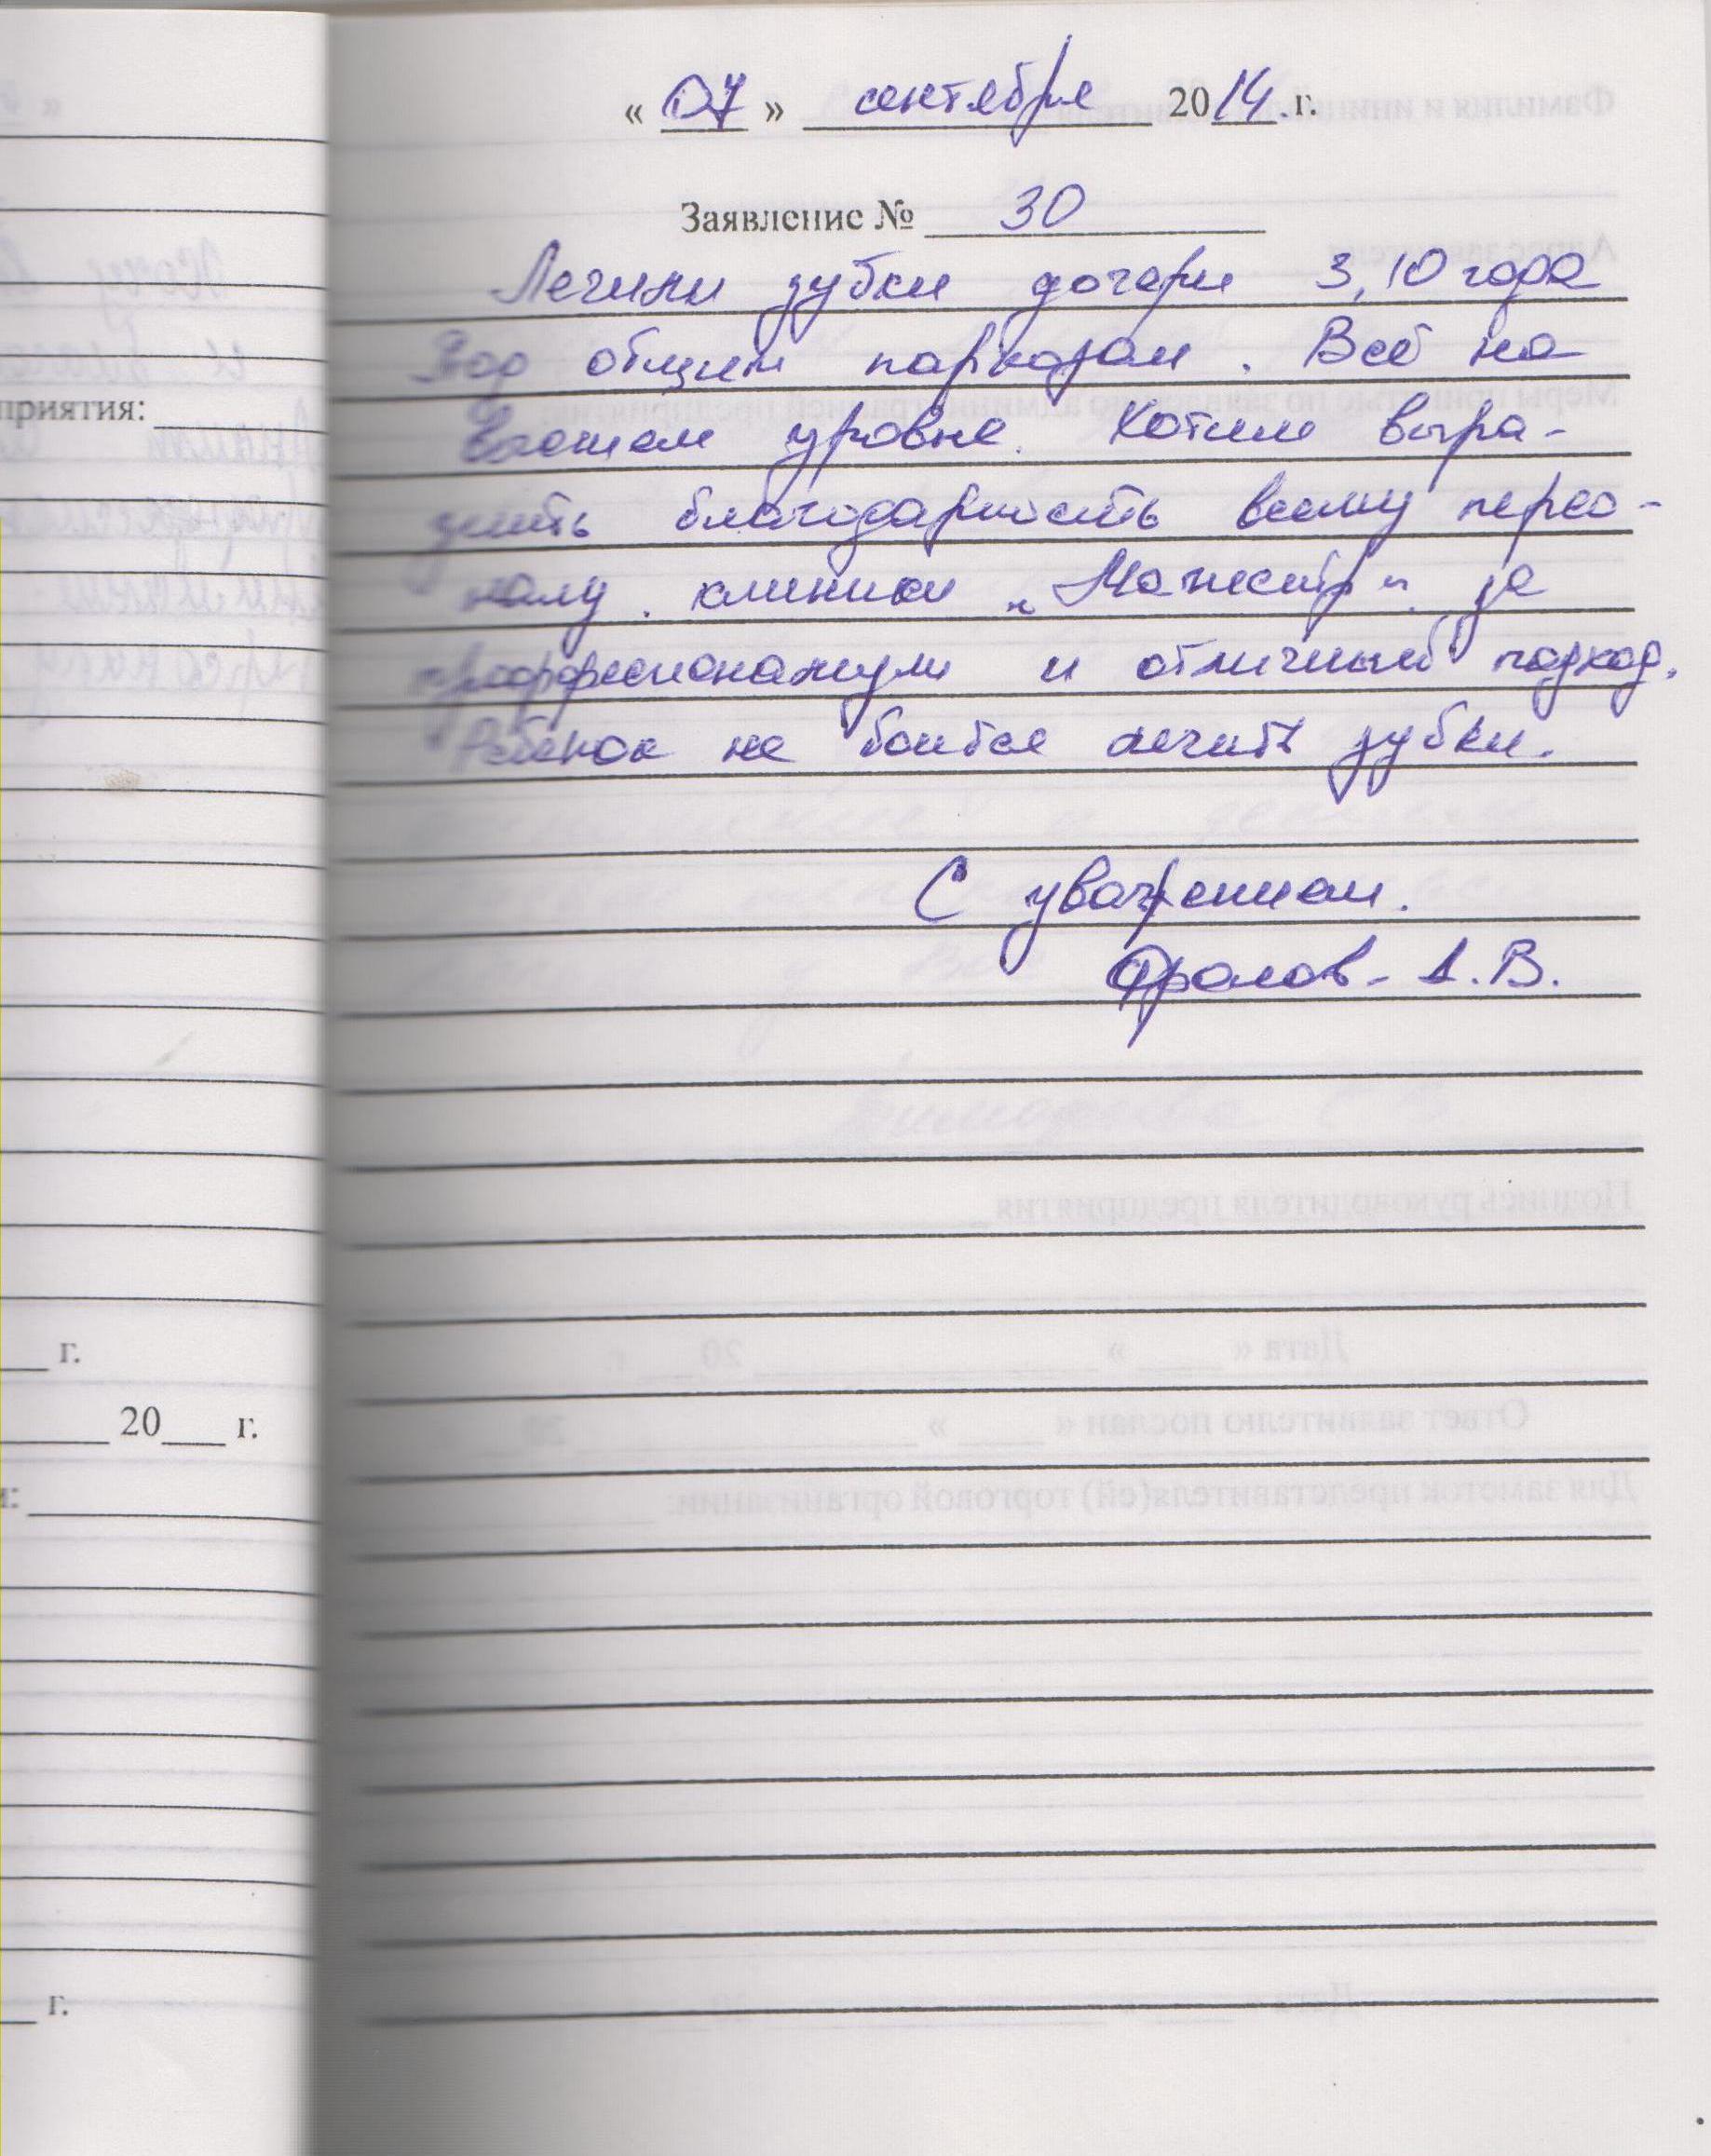 « 07 » сентября 2014. г.
Заявление № 30
Лечили зубки дочери 3,10 года
Под общим наркозом. Всё на
высшем уровне. Хотим выра-
зить благодарность всему персо-
налу клиники „Мажестр" за
профессионализм и отличный подход.
Ребенок не боится лечить зубки.
С уважением.
Фролов А.В.
приятия:
г.
20 г.
г.